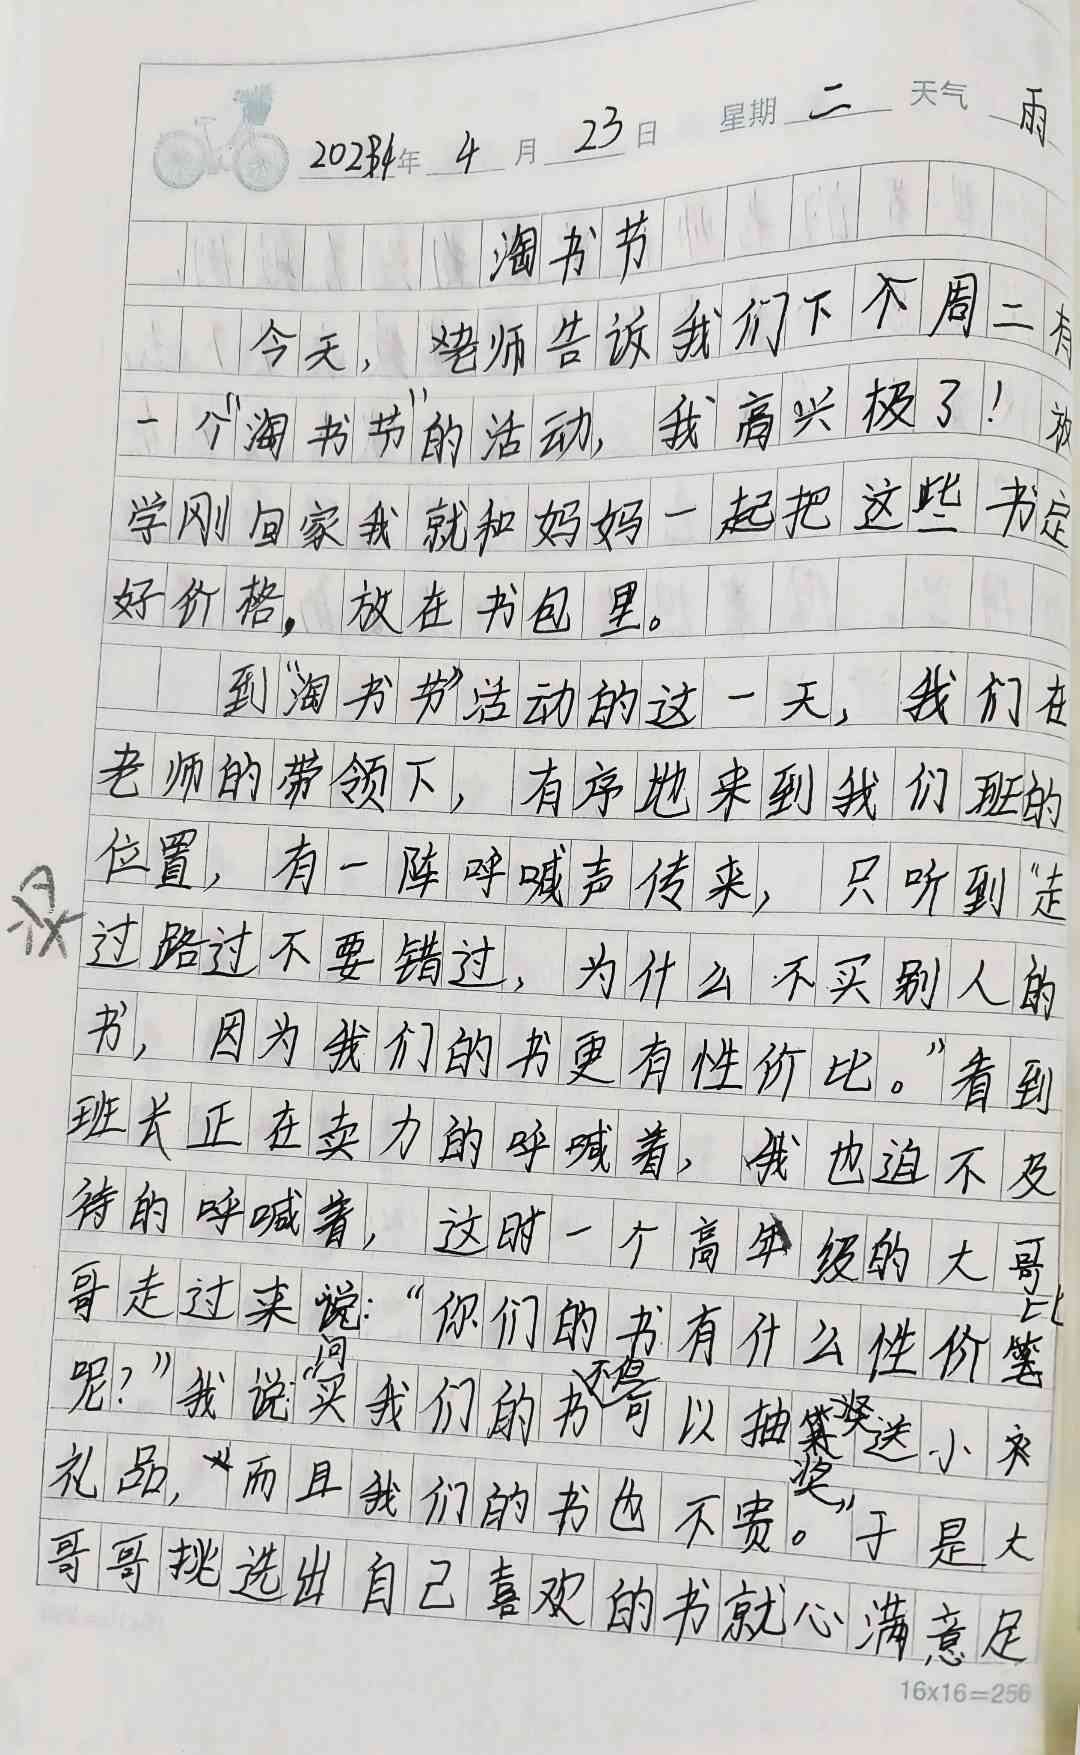 2024年 4月 23日 星期 二 天气 雨
淘书节
今天，老师告诉我们下个周二有
一个“淘书节”的活动，我高兴极了！放
学刚回家我就和妈妈一起把这些书定
好价格，放在书包里。
到“淘书节”活动的这一天，我们在
老师的带领下，有序地来到我们班的
位置，有一阵呼喊声传来，只听到“走
过路过不要错过，为什么不买别人的
书，因为我们的书更有性价比。”看到
班长正在卖力的呼喊着，我也迫不及
待的呼喊着，这时一个高年级的大哥
哥走过来问：“你们的书有什么性价比
呢？”我说：“买我们的书不但可以抽奖送小
礼品，而且我们的书也不贵。”于是大
哥哥挑选出自己喜欢的书就心满意足
16x16=256